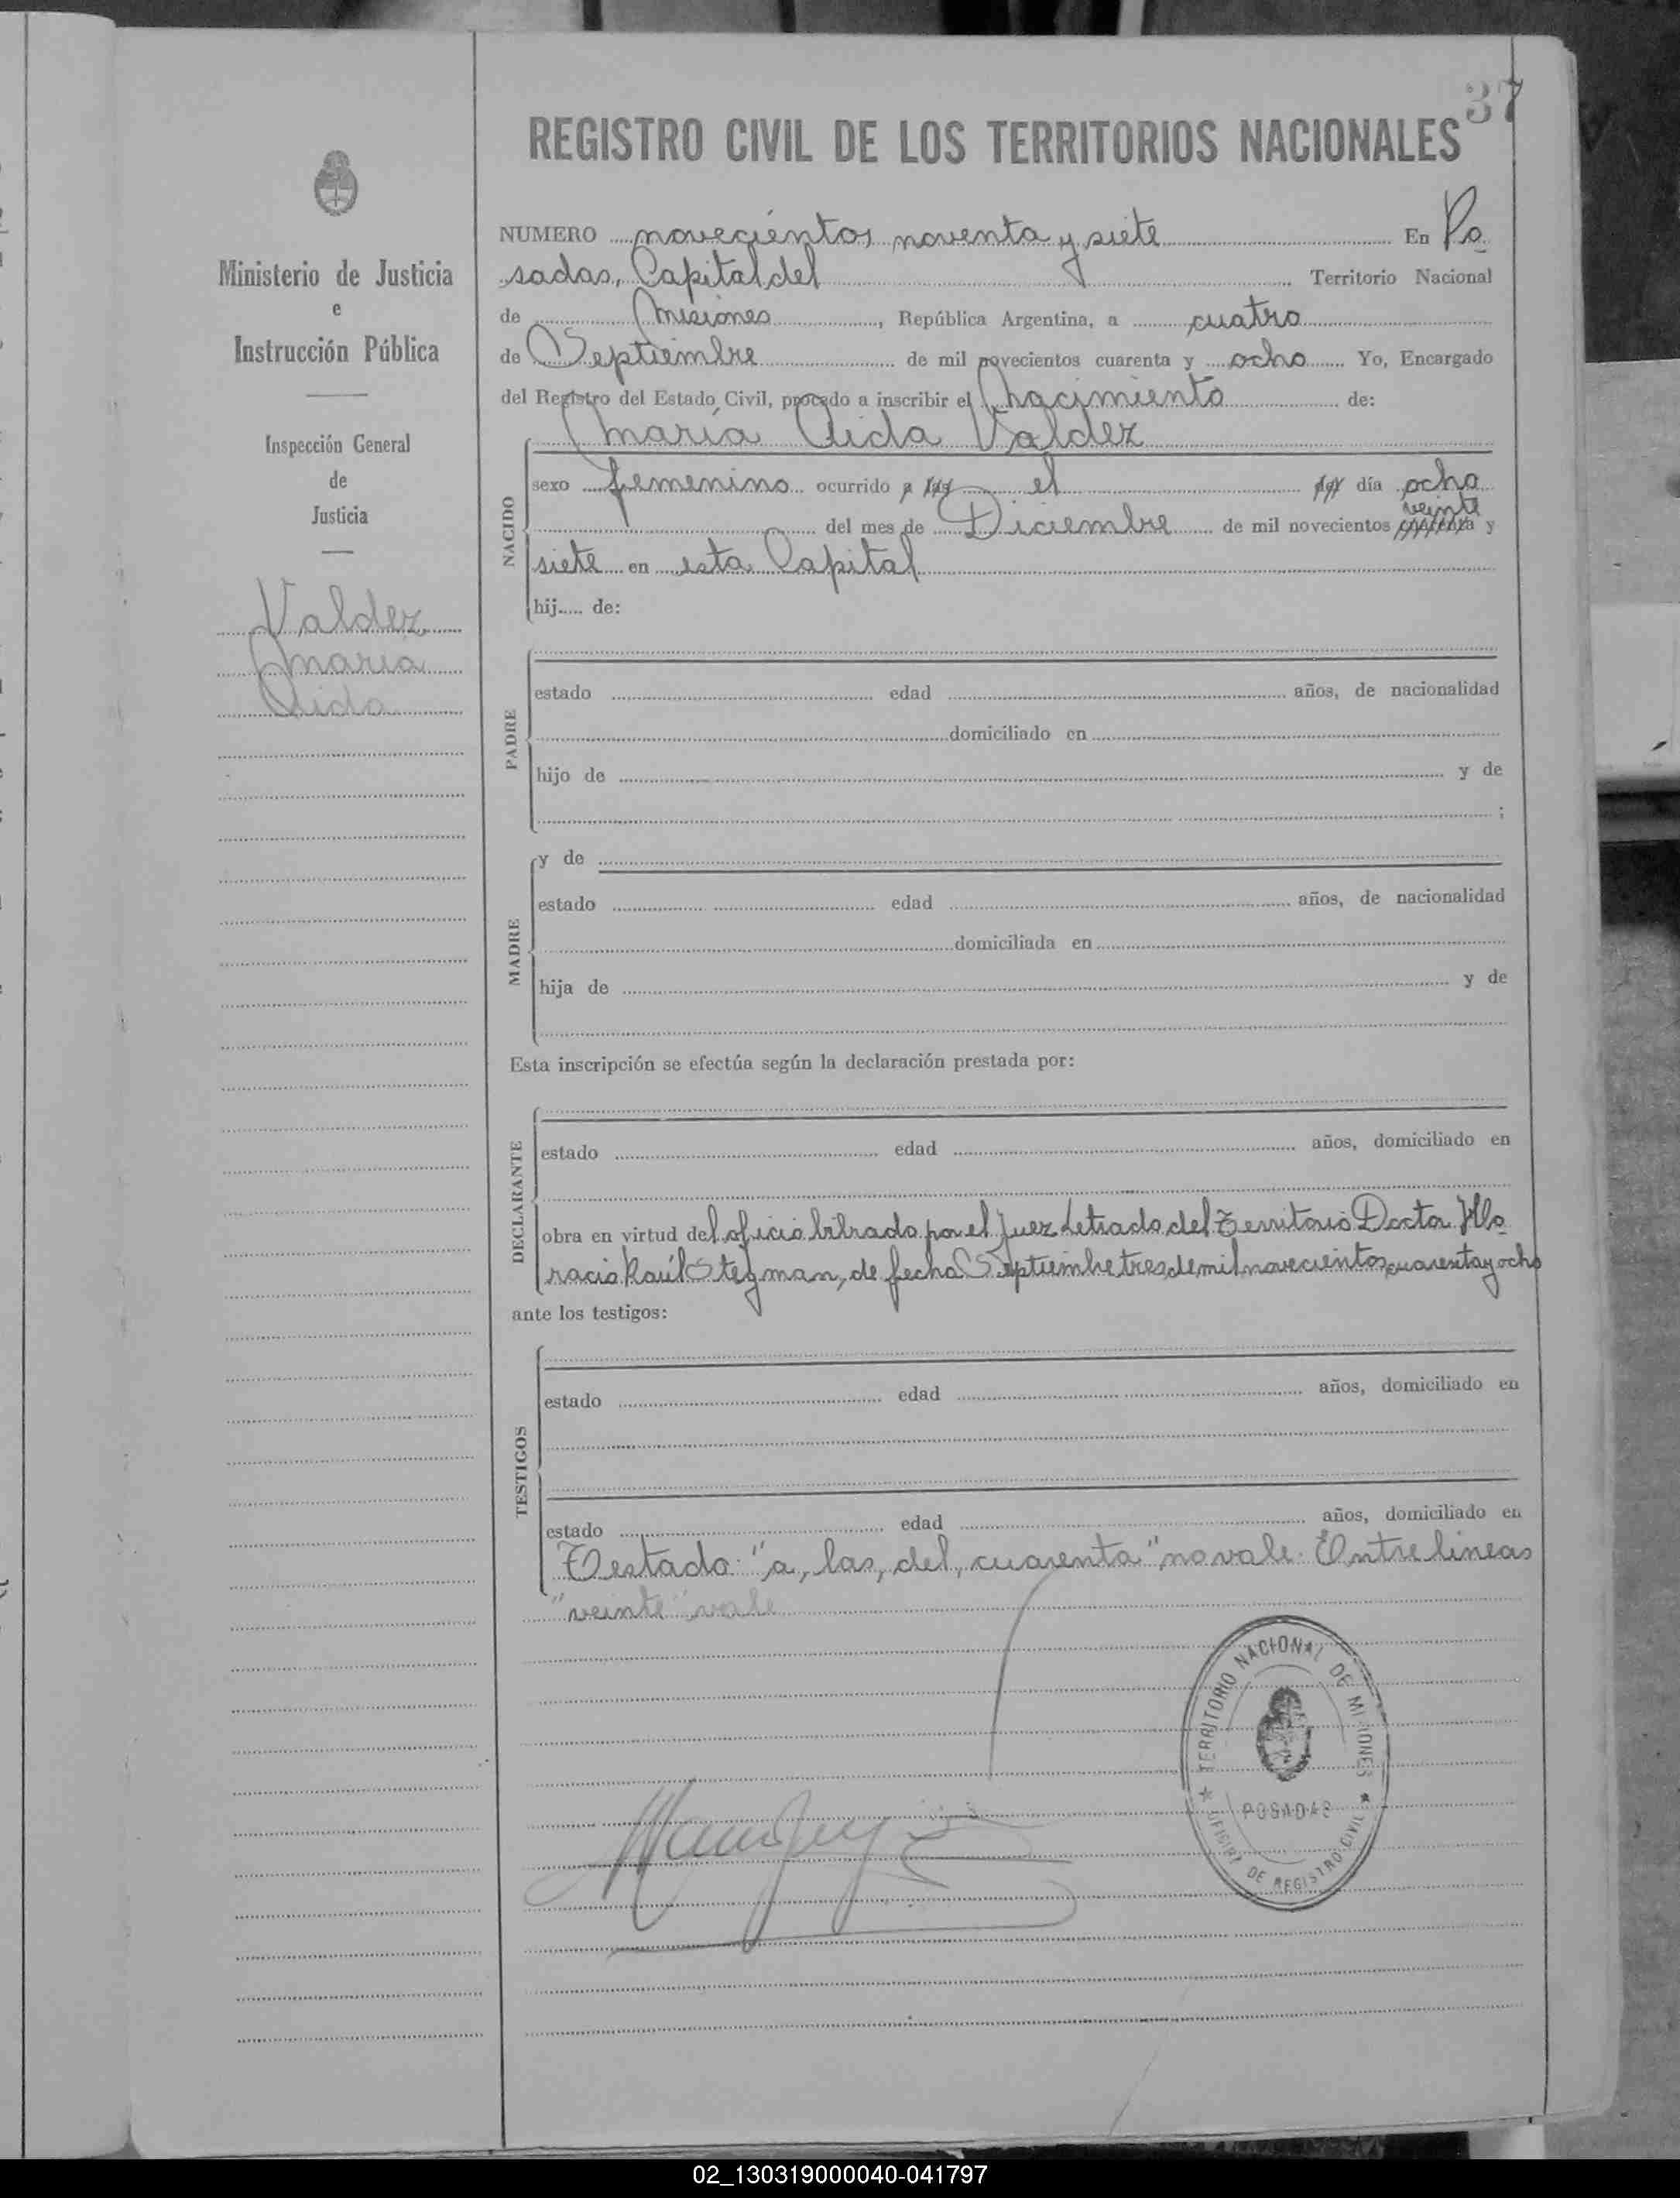 37
REGISTRO CIVIL DE LOS TERRITORIOS NACIONALES
Ministerio de Justicia
e
Instrucción Pública
Inspección General
de
Justicia
Valdez
María
Aida
NUMERO novecientos noventa y siete En Po
sadas, Capital del Territorio Nacional
de Misiones, República Argentina, a cuatro
de Septiembre de mil novecientos cuarenta y ocho Yo, Encargado
del Registro del Estado Civil, procedo a inscribir el Nacimiento de:
María Aida Valdez
NACIDO
sexo femenino ocurrido a las el del día ocho
veinte
del mes de Diciembre de mil novecientos cuarenta y
siete en esta Capital
hij..... de:
PADRE
estado edad años, de nacionalidad
domiciliado en
hijo de y de
;
MADRE
y de
estado edad años, de nacionalidad
domiciliada en
hija de y de
Esta inscripción se efectúa según la declaración prestada por:
DECLARANTE
estado edad años, domiciliado en
obra en virtud del oficio librado por el Juez Letrado del Territorio Doctor Ho
racio Raúl Stegman, de fecha Septiembre tres de mil novecientos cuarenta y ocho
ante los testigos:
TESTIGOS
estado edad años, domiciliado en
estado edad años, domiciliado en
Testado: "a, las, del, cuarenta", no vale. Entre lineas
"veinte" vale
TERRITORIO NACIONAL DE MISIONES
POSADAS
OFICINA DE REGISTRO CIVIL
02_130319000040-041797